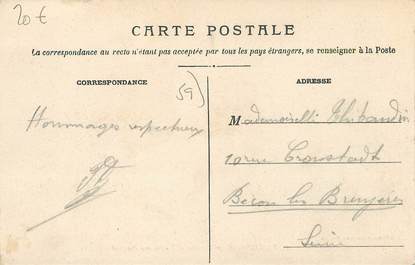 20 €
CARTE POSTALE
La correspondance au recto n'étant pas acceptée par tous les pays étrangers, se renseigner à la Poste
CORRESPONDANCE
ADRESSE
59)
Hommages respectueux
Mademoiselle Thibaudin
10 rue Cronstadt
Becon les Bruyères
Seine